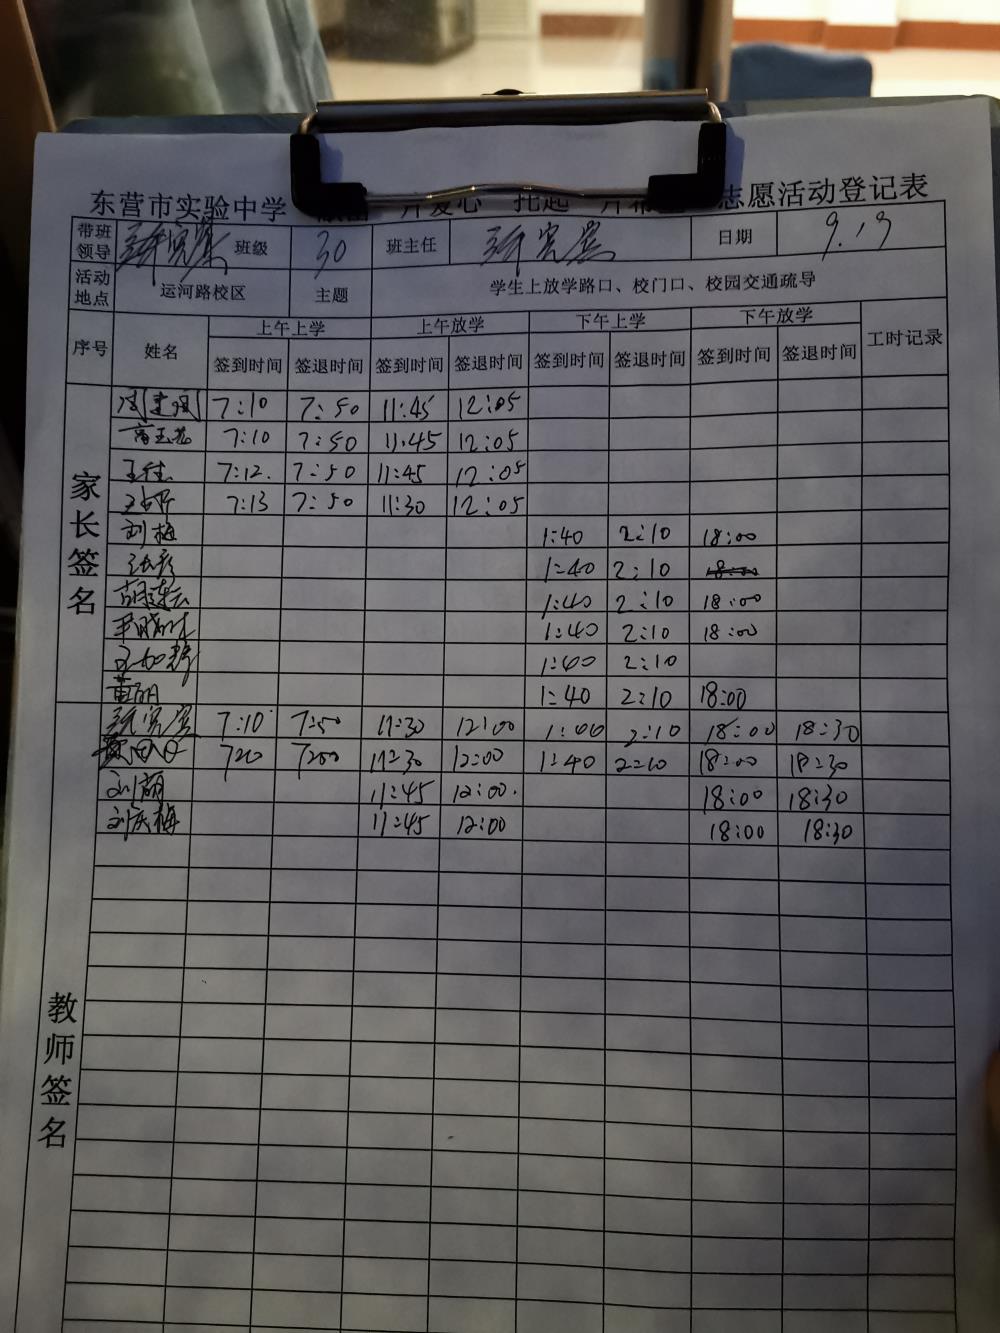 东营市实验中学 片爱心 托起 片希 志愿活动登记表
带班领导 班级 30 班主任 日期 9.19
活动地点 运河路校区 主题 学生上放学路口、校门口、校园交通疏导
序号 姓名 上午上学 上午放学 下午上学 下午放学 工时记录
签到时间 签退时间 签到时间 签退时间 签到时间 签退时间 签到时间 签退时间
家长签名
7:10 7:50 11:45 12:05
7:10 7:50 11:45 12:05
7:12. 7:50 11:45 12:05
7:13 7:50 11:30 12:05
刘梅 1:40 2:10 18:00
1:40 2:10 18:00
1:40 2:10 18:00
1:40 2:10 18:00
1:40 2:10
董丽 1:40 2:10 18:00
教师签名
7:10 7:50 11:30 12:00 1:00 2:10 18:00 18:30
7:20 7:50 11:30 12:00 1:40 2:10 18:00 18:30
刘萌 11:45 12:00. 18:00 18:30
刘庆梅 11:45 12:00 18:00 18:30